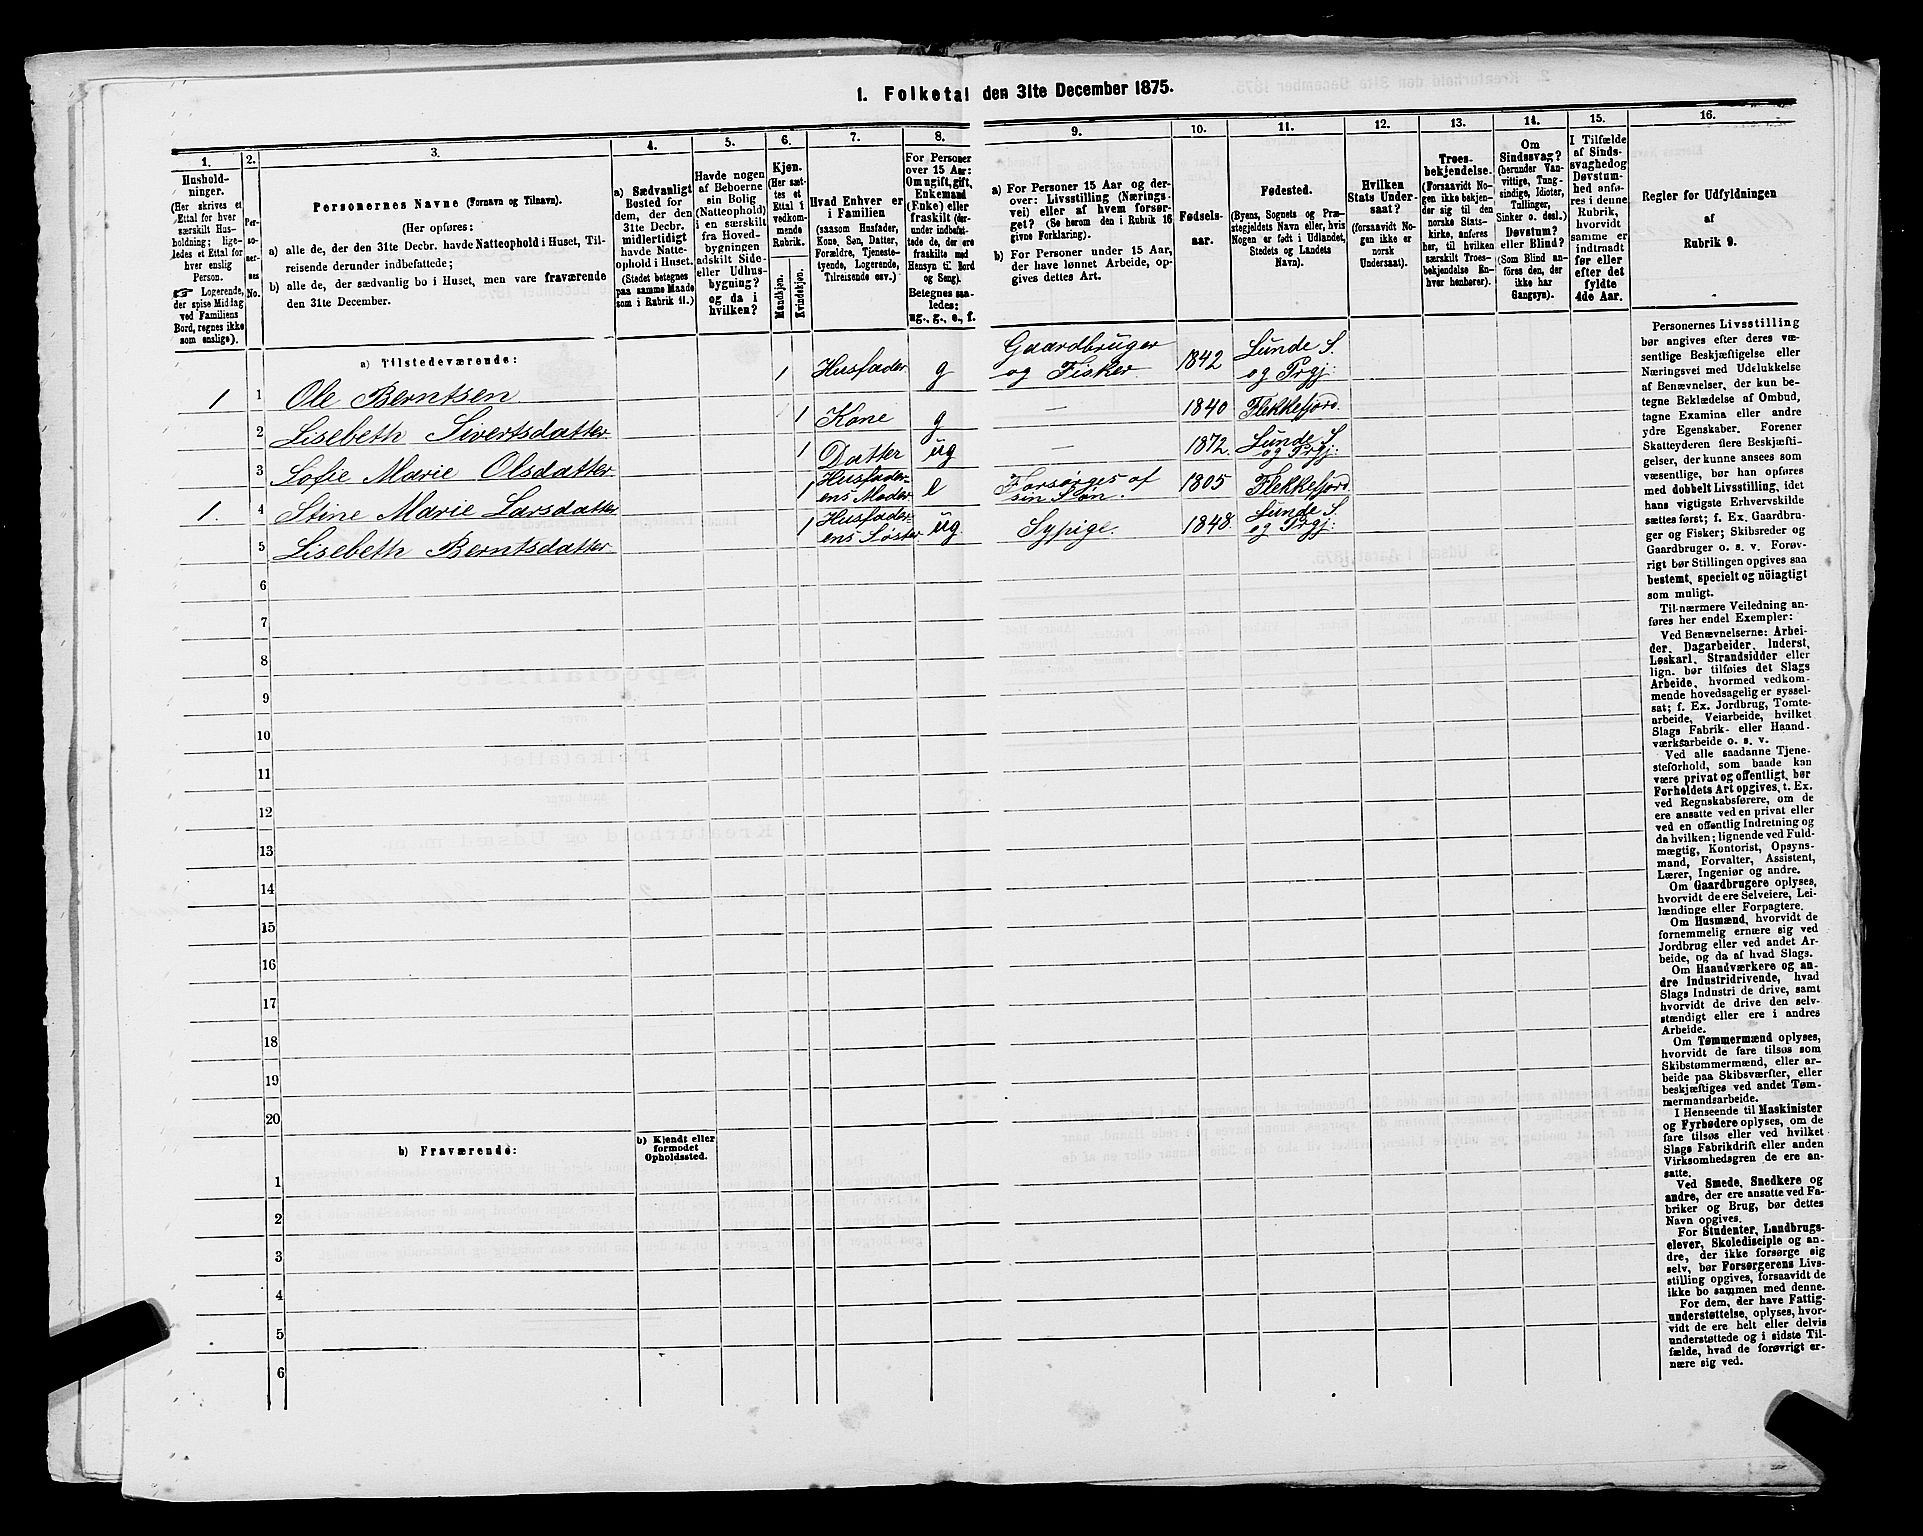 1. Folketal den 31te December 1875.
1.
2.
3.
4.
5.
6.
7.
8.
9.
10.
11.
12.
13.
14.
15.
16.
Hushold-
ninger.
(Her skrives et
Ettal for hver
særskilt Hus-
holdning; lige-
ledes et Ettal for
hver enslig
Person.
☞ Logerende,
der spise Middag
ved Familiens
Bord, regnes ikke
som enslige).
Per-
so-
ner-
nes
No.
Personernes Navne (Fornavn og Tilnavn).
(Her opføres:
a) alle de, der den 31te Decbr. havde Natteophold i Huset, Til-
reisende derunder indbefattede;
b) alle de, der sædvanlig bo i Huset, men vare fraværende
den 31te December.
a) Sædvanligt
Bosted for
dem, der den
31te Decbr.
midlertidigt
havde Natte-
ophold i Huset.
(Stedet betegnes
paa samme Maade
som i Rubrik 11.)
Havde nogen
af Beboerne
sin Bolig
(Natteophold)
i en særskilt
fra Hoved-
bygningen
adskilt Side-
eller Udhus-
bygning?
og da i
hvilken?
Kjøn.
(Her sæt-
tes et
Ettal i
vedkom-
mende
Rubrik.
Mandkjøn.
Kvindekjøn.
Hvad Enhver er
i Familien
(saasom Husfader,
Kone, Søn, Datter,
Forældre, Tjeneste-
tyende, Logerende,
Tilreisende osv.)
For Personer
over 15 Aar:
Om ugift, gift,
Enkemand
(Enke) eller
fraskilt (der-
under indbefat-
tede de, der ere
fraskilte med
Hensyn til Bord
og Seng).
Betegnes saa-
ledes:
ug., g., e., f.
a) For Personer 15 Aar og der-
over: Livsstilling (Nærings-
vei) eller af hvem forsør-
get? (Se herom den i Rubrik 16
givne Forklaring).
b) For Personer under 15 Aar,
der have lønnet Arbeide, op-
gives dettes Art.
Fødsels-
aar.
Fødested.
(Byens, Sognets og Præ-
stegjeldets Navn eller, hvis
Nogen er født i Udlandet,
Stedets og Landets
Navn).
Hvilken
Stats Under-
saat?
(forsaavidt No-
gen ikke er
norsk
Undersaat).
Troes-
bekjendelse.
(Forsaavidt No-
gen ikke bekjen-
der sig til den
norske Stats-
kirke, anføres
her, til hvilken
særskilt Troes-
bekjendelse En-
hver henhører).
Om
Sindssvag?
(herunder Van-
vittige, Tung-
sindige, Idioter,
Tullinger,
Sinker o. desl.)
Døvstum?
eller Blind?
(Som Blind an-
føres den, der
ikke har
Gangsyn).
I Tilfælde
af Sinds-
svaghed og
Døvstum-
hed anfø-
res i denne
Rubrik,
hvorvidt
samme er
indtraadt
før eller
efter det
fyldte
4de Aar.
Regler for Udfyldningen
af
Rubrik 9.
a) Tilstedeværende:
1 1 Ole Berntsen 1 Husfader g Gaardbruger og Fisker. 1842 Lunde S. og Prgj:
2 Lisebeth Sivertsdatter 1 Kone g — 1840 Flekkefjord.
3 Sofie Marie Olsdatter 1 Datter ug — 1872. Lunde S. og Prgj:
1. 4 Stine Marie Larsdatter 1 Husfader- ens Moder e Forsørges af sin Søn. 1805 Flekkefjord
5 Lisebeth Berntsdatter 1 Husfader- ens Søster ug Sypige. 1848. Lunde S. og Prgj:
6
7
8
9
10
11
12
13
14
15
16
17
18
19
20
b) Fraværende:
b) Kjendt eller
formodet
Opholdssted.
1
2
3
4
5
6
Personernes Livsstilling
bør angives efter deres væ-
sentlige Beskjæftigelse eller
Næringsvei med Udelukkelse
af Benævnelser, der kun be-
tegne Beklædelse af Ombud,
tagne Examina eller andre
ydre Egenskaber. Forener
Skatteyderen flere Beskjæfti-
gelser, der kunne ansees som
væsentlige, bør han opføres
med dobbelt Livsstilling, idet
hans vigtigste Erhvervskilde
sættes først; f. Ex. Gaardbru-
ger og Fisker; Skibsreder og
Gaardbruger o. s. v. Forøv-
rigt bør Stillingen opgives saa
bestemt, specielt og nöiagtigt
som muligt.
Til nærmere Veiledning an-
føres her endel Exempler:
Ved Benævnelserne: Arbei-
der, Dagarbeider, Inderst,
Løskarl, Strandsidder eller
lign. bør tilføies det Slags
Arbeide, hvormed vedkom-
mende hovedsagelig er syssel-
sat; f. Ex. Jordbrug, Tomte-
arbeide, Veiarbeide, hvilket
Slags Fabrik- eller Haand-
værksarbeide o. s. v.
Ved alle saadanne Tjene-
steforhold, som baade kan
være privat og offentligt, bør
Forholdets Art opgives, t. Ex.
ved Regnskabsførere, om de
ere ansatte ved en privat eller
ved en offentlig Indretning og
da hvilken; lignende ved Fuld-
mægtig, Kontorist, Opsyns-
mand, Forvalter, Assistent,
Lærer, Ingeniør og andre.
Om Gaardbrugere oplyses,
hvorvidt de ere Selveiere, Lei-
lændinge eller Forpagtere.
Om Husmænd, hvorvidt de
fornemmelig ernære sig ved
Jordbrug eller ved andet Ar-
beide, og da af hvad Slags.
Om Haandværkere og an-
dre Industridrivende, hvad
Slags Industri de drive, samt
hvorvidt de drive den selv-
stændigt eller ere i andres
Arbeide.
Om Tømmermænd oplyses,
hvorvidt de fare tilsøs som
Skibstømmermænd, eller ar-
beide paa Skibsværfter, eller
beskjæftiges ved andet Tøm-
mermandsarbeide.
I Henseende til Maskinister
og Fyrbødere oplyses, om de
fare tilsøs eller ved hvilket
Slags Fabrikdrift eller anden
Virksomhedsgren de ere an-
satte.
Ved Smede, Snedkere og
andre, der ere ansatte ved Fa-
briker og Brug, bør dettes
Navn opgives.
For Studenter, Landbrugs-
elever, Skoledisciple og an-
dre, der ikke forsørge sig
selv, bør Forsørgerens Livs-
stilling opgives, forsaavidt de
ikke bo sammen med denne.
For dem, der have Fattig-
understøttelse, oplyses, hvor-
vidt de ere helt eller delvis
understøttede og i sidste Til-
fælde, hvad de forøvrigt er-
nære sig ved.